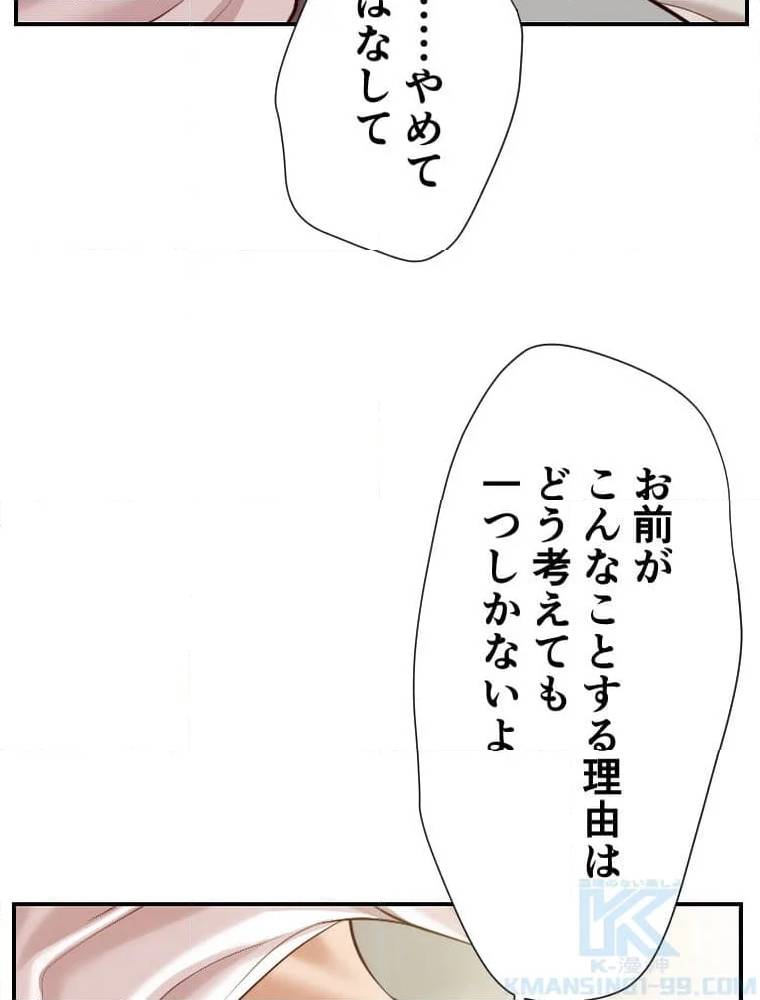 ……やめて
はなして
お前が
こんなことする理由は
どう考えても
一つしかないよ
K-漫神
KMANSIN01-99.COM